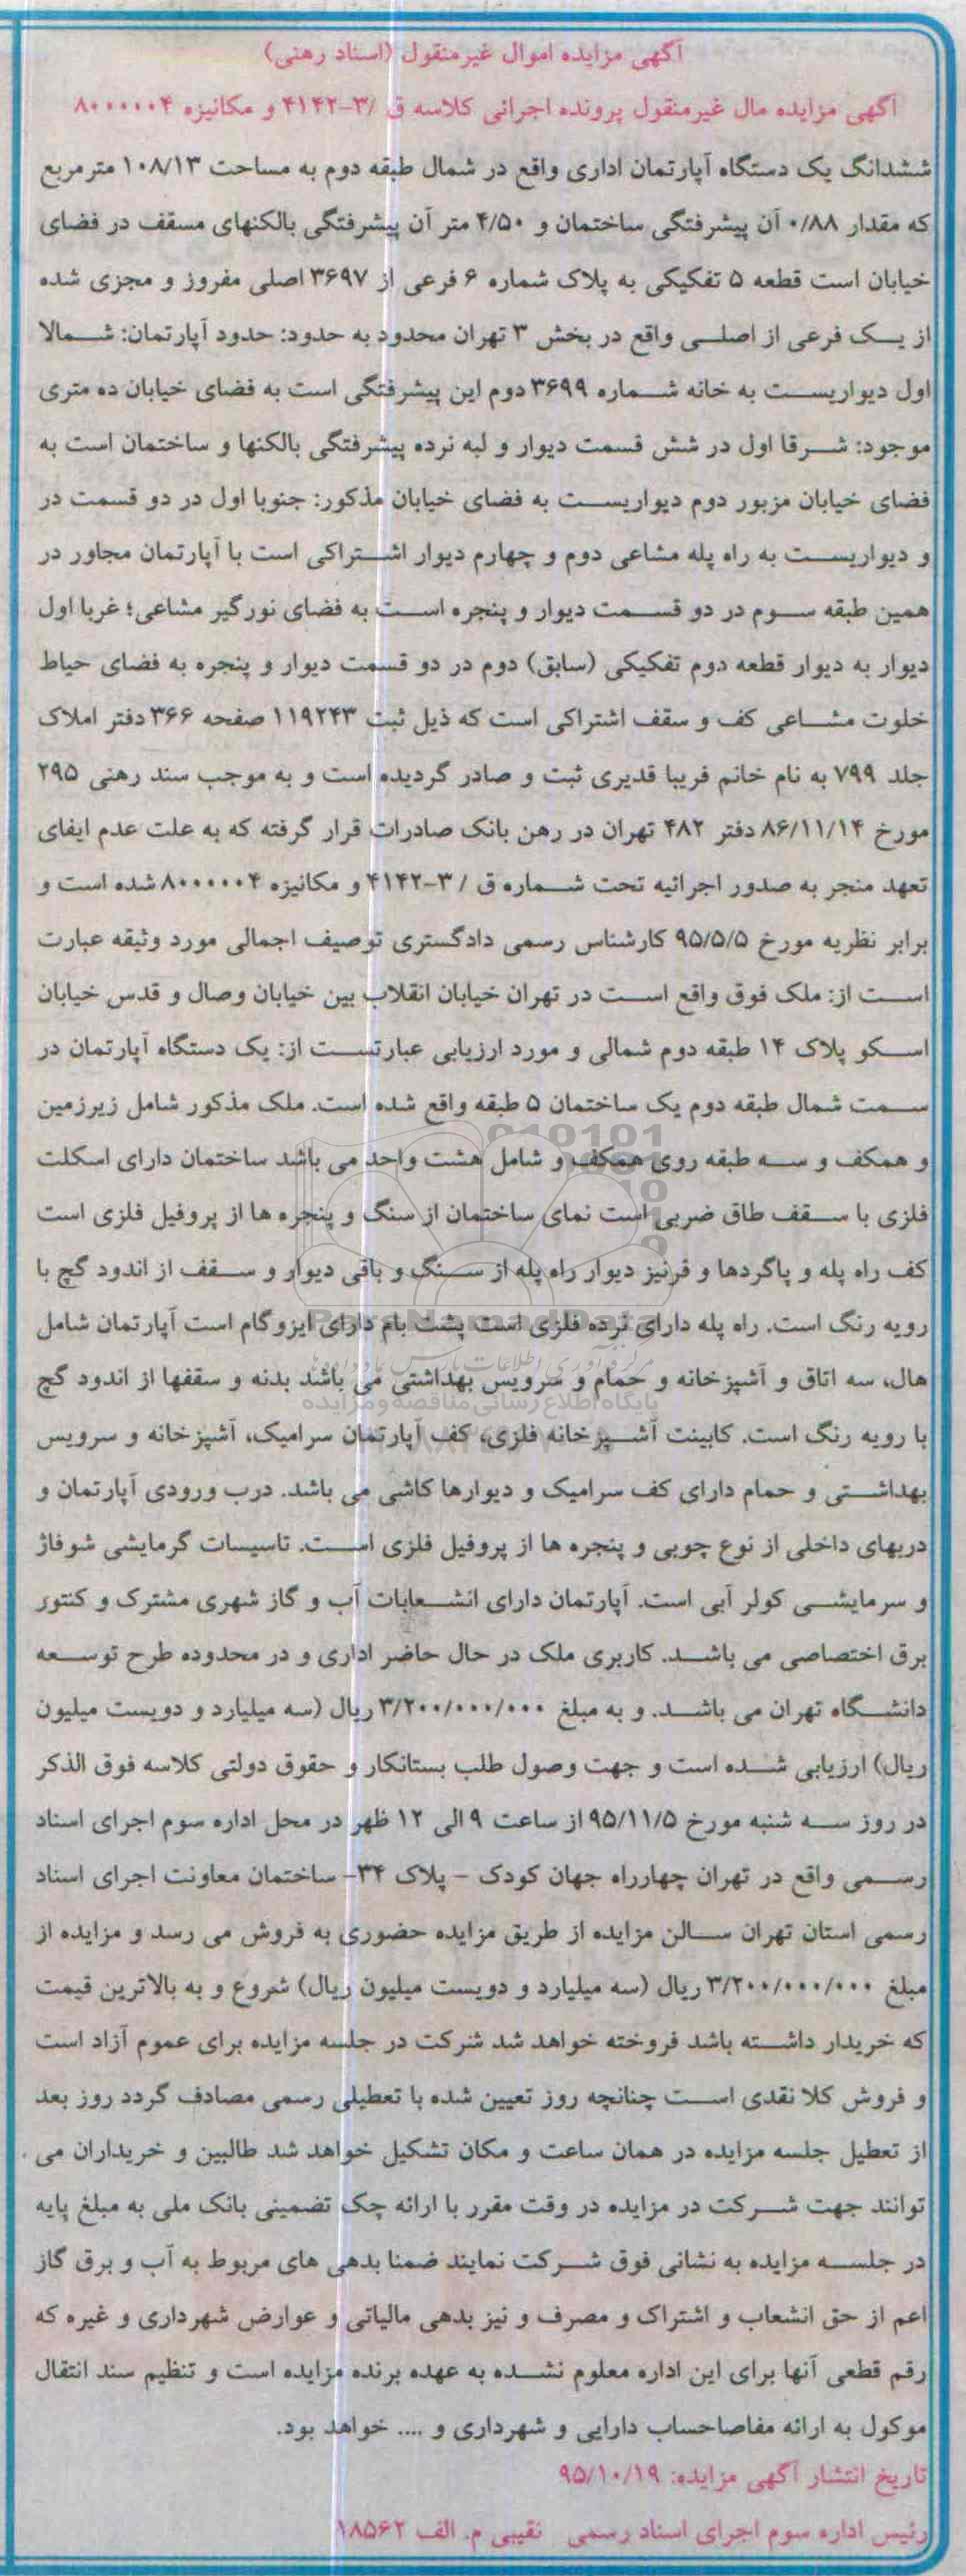 آگهی مزایده اموال غیرمنقول (اسناد رهنی)
آگهی مزایده مال غیرمنقول پرونده اجرائی کلاسه ق /۳-۴۱۴۲ و مکانیزه ۸۰۰۰۰۰۴
ششدانگ یک دستگاه آپارتمان اداری واقع در شمال طبقه دوم به مساحت ۱۰۸/۱۳ مترمربع
که مقدار ۰/۸۸ آن پیشرفتگی ساختمان و ۴/۵۰ متر آن پیشرفتگی بالکنهای مسقف در فضای
خیابان است قطعه ۵ تفکیکی به پلاک شماره ۶ فرعی از ۳۶۹۷ اصلی مفروز و مجزی شده
از یک فرعی از اصلی واقع در بخش ۳ تهران محدود به حدود: حدود آپارتمان: شمالا
اول دیواریست به خانه شماره ۳۶۹۹ دوم این پیشرفتگی است به فضای خیابان ده متری
موجود: شرقا اول در شش قسمت دیوار و لبه نرده پیشرفتگی بالکنها و ساختمان است به
فضای خیابان مزبور دوم دیواریست به فضای خیابان مذکور: جنوبا اول در دو قسمت در
و دیواریست به راه پله مشاعی دوم و چهارم دیوار اشتراکی است با آپارتمان مجاور در
همین طبقه سوم در دو قسمت دیوار و پنجره است به فضای نورگیر مشاعی؛ غربا اول
دیوار به دیوار قطعه دوم تفکیکی (سابق) دوم در دو قسمت دیوار و پنجره به فضای حیاط
خلوت مشاعی کف و سقف اشتراکی است که ذیل ثبت ۱۱۹۲۴۳ صفحه ۳۶۶ دفتر املاک
جلد ۷۹۹ به نام خانم فریبا قدیری ثبت و صادر گردیده است و به موجب سند رهنی ۲۹۵
مورخ ۸۶/۱۱/۱۴ دفتر ۴۸۲ تهران در رهن بانک صادرات قرار گرفته که به علت عدم ایفای
تعهد منجر به صدور اجرائیه تحت شماره ق / ۳-۴۱۴۲ و مکانیزه ۸۰۰۰۰۰۴ شده است و
برابر نظریه مورخ ۹۵/۵/۵ کارشناس رسمی دادگستری توصیف اجمالی مورد وثیقه عبارت
است از: ملک فوق واقع است در تهران خیابان انقلاب بین خیابان وصال و قدس خیابان
اسکو پلاک ۱۴ طبقه دوم شمالی و مورد ارزیابی عبارتست از: یک دستگاه آپارتمان در
سمت شمال طبقه دوم یک ساختمان ۵ طبقه واقع شده است. ملک مذکور شامل زیرزمین
و همکف و سه طبقه روی همکف و شامل هشت واحد می باشد ساختمان دارای اسکلت
فلزی با سقف طاق ضربی است نمای ساختمان از سنگ و پنجره ها از پروفیل فلزی است
کف راه پله و پاگردها و قرنیز دیوار راه پله از سنگ و باقی دیوار و سقف از اندود گچ با
رویه رنگ است. راه پله دارای نرده فلزی است پشت بام دارای ایزوگام است آپارتمان شامل
هال، سه اتاق و آشپزخانه و حمام و سرویس بهداشتی می باشد بدنه و سقفها از اندود گچ
با رویه رنگ است. کابینت آشپزخانه فلزی، کف آپارتمان سرامیک، آشپزخانه و سرویس
بهداشتی و حمام دارای کف سرامیک و دیوارها کاشی می باشد. درب ورودی آپارتمان و
دربهای داخلی از نوع چوبی و پنجره ها از پروفیل فلزی است. تاسیسات گرمایشی شوفاژ
و سرمایشی کولر آبی است. آپارتمان دارای انشعابات آب و گاز شهری مشترک و کنتور
برق اختصاصی می باشد. کاربری ملک در حال حاضر اداری و در محدوده طرح توسعه
دانشگاه تهران می باشد. و به مبلغ ۳/۲۰۰/۰۰۰/۰۰۰ ریال (سه میلیارد و دویست میلیون
ریال) ارزیابی شده است و جهت وصول طلب بستانکار و حقوق دولتی کلاسه فوق الذکر
در روز سه شنبه مورخ ۹۵/۱۱/۵ از ساعت ۹ الی ۱۲ ظهر در محل اداره سوم اجرای اسناد
رسمی واقع در تهران چهارراه جهان کودک - پلاک ۳۴- ساختمان معاونت اجرای اسناد
رسمی استان تهران سالن مزایده از طریق مزایده حضوری به فروش می رسد و مزایده از
مبلغ ۳/۲۰۰/۰۰۰/۰۰۰ ریال (سه میلیارد و دویست میلیون ریال) شروع و به بالاترین قیمت
که خریدار داشته باشد فروخته خواهد شد شرکت در جلسه مزایده برای عموم آزاد است
و فروش کلا نقدی است چنانچه روز تعیین شده با تعطیلی رسمی مصادف گردد روز بعد
از تعطیل جلسه مزایده در همان ساعت و مکان تشکیل خواهد شد طالبین و خریداران می
توانند جهت شرکت در مزایده در وقت مقرر با ارائه چک تضمینی بانک ملی به مبلغ پایه
در جلسه مزایده به نشانی فوق شرکت نمایند ضمنا بدهی های مربوط به آب و برق گاز
اعم از حق انشعاب و اشتراک و مصرف و نیز بدهی مالیاتی و عوارض شهرداری و غیره که
رقم قطعی آنها برای این اداره معلوم نشده به عهده برنده مزایده است و تنظیم سند انتقال
موکول به ارائه مفاصاحساب دارایی و شهرداری و .... خواهد بود.
تاریخ انتشار آگهی مزایده: ۹۵/۱۰/۱۹
رئیس اداره سوم اجرای اسناد رسمی نقیبی م. الف ۱۸۵۶۲